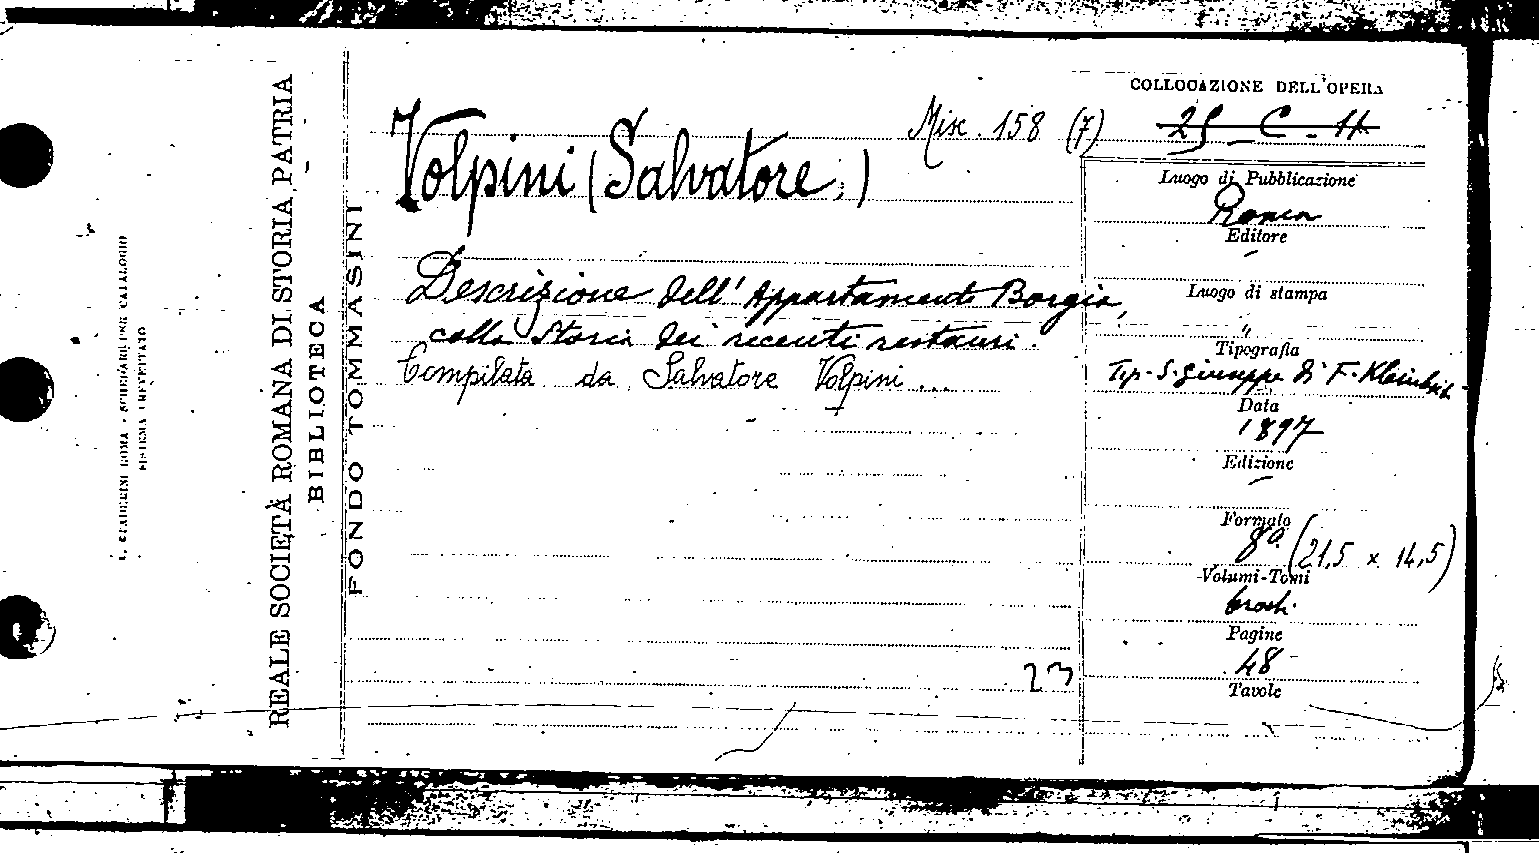 COLLOCAZIONE DELL'OPERA
Misc. 158 (7)
25 - C - 11
Volpini (Salvatore.)
Descrizione dell' Appartamento Borgia,
colla Storia dei recenti restauri.
Compilata da Salvatore Volpini ...
Luogo di Pubblicazione
Roma
Editore
Luogo di stampa
"
Tipografia
Tip. S. Giuseppe di F.
Data
1897
Edizione
Formato
8º (21,5 x 14,5)
Volumi-Tomi
Pagine
48
Tavole
23
FONDO TOMMASINI
REALE SOCIETÀ ROMANA DI STORIA PATRIA
BIBLIOTECA
ROMA - SCHEDARI PER CATALOGHI
SISTEMA BREVETTATO